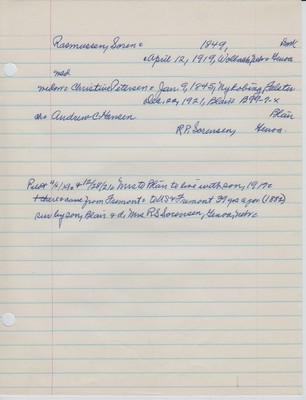 Rasmussen, Soren c 1849, Dmk
c April 12, 1919, Wolbach, Nebr Genoa
md
Christine Petersen c Jan. 9, 1845, Nykobing, Falster
Dec. 22, 1921, Blair 1899-?-x
ch Andrew C Hansen Blair
R P Sorensen, Genoa
to Blair to live with son, 1917c
there came from Fremont c to US & Fremont 39 yrs ago c (1882)
sur by son, Blair & d. Mrs. R S Sorensen, Genoa, Nebr c